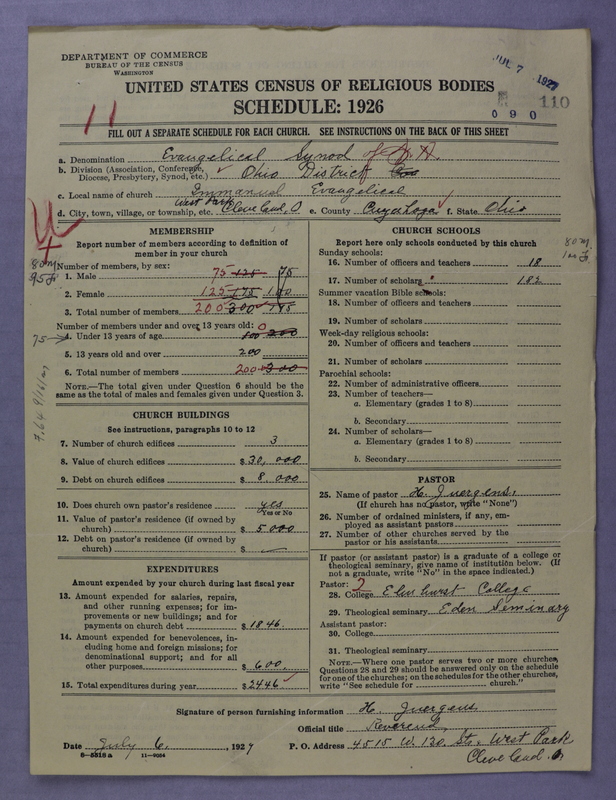 DEPARTMENT OF COMMERCE
BUREAU OF THE CENSUS
WASHINGTON
JUL 7 1927
UNITED STATES CENSUS OF RELIGIOUS BODIES
SCHEDULE: 1926
11
110
0 9 0
FILL OUT A SEPARATE SCHEDULE FOR EACH CHURCH. SEE INSTRUCTIONS ON THE BACK OF THIS SHEET
a. Denomination Evangelical Synod of N.A.
b. Division (Association, Conference, Diocese, Presbytery, Synod, etc.) Ohio District
c. Local name of church Immanuel Evangelical
West Park
d. City, town, village, or township, etc. Cleveland, O. e. County Cuyahoga f. State Ohio
MEMBERSHIP
Report number of members according to definition of
member in your church
Number of members, by sex:
1. Male 75 125 75
2. Female 125 175 100
3. Total number of members 200 300 175
Number of members under and over 13 years old:
75
4. Under 13 years of age 0 100 200
5. 13 years old and over 200
6. Total number of members 200 300
NOTE.—The total given under Question 6 should be the
same as the total of males and females given under Question 3.
CHURCH BUILDINGS
See instructions, paragraphs 10 to 12
7. Number of church edifices 3
8. Value of church edifices $30,000
9. Debt on church edifices $8,000
10. Does church own pastor's residence yes
Yes or No
11. Value of pastor's residence (if owned by
church) $5,000
12. Debt on pastor's residence (if owned by
church) $
EXPENDITURES
Amount expended by your church during last fiscal year
13. Amount expended for salaries, repairs,
and other running expenses; for im-
provements or new buildings; and for
payments on church debt $1846.
14. Amount expended for benevolences, in-
cluding home and foreign missions; for
denominational support; and for all
other purposes $600.
15. Total expenditures during year $2446
CHURCH SCHOOLS
Report here only schools conducted by this church
Sunday schools:
16. Number of officers and teachers 18
17. Number of scholars 182
Summer vacation Bible schools:
18. Number of officers and teachers
19. Number of scholars
Week-day religious schools:
20. Number of officers and teachers
21. Number of scholars
Parochial schools:
22. Number of administrative officers
23. Number of teachers—
a. Elementary (grades 1 to 8)
b. Secondary
24. Number of scholars—
a. Elementary (grades 1 to 8)
b. Secondary
PASTOR
25. Name of pastor H. Juergens,
(If church has no pastor, write "None")
26. Number of ordained ministers, if any, em-
ployed as assistant pastors
27. Number of other churches served by the
pastor or his assistants
If pastor (or assistant pastor) is a graduate of a college or
theological seminary, give name of institution below. (If
not a graduate, write "No" in the space indicated.)
Pastor: 2
28. College Elmhurst College
29. Theological seminary Eden Seminary
Assistant pastor:
30. College
31. Theological seminary
NOTE.—Where one pastor serves two or more churches,
Questions 28 and 29 should be answered only on the schedule
for one of the churches; on the schedules for the other churches,
write "See schedule for church."
Signature of person furnishing information H. Juergens
Official title Reverend,
Date July 6, 1927 P. O. Address 4515 W. 130. St., West Park
Cleveland. O.
8—5518a 11—9054